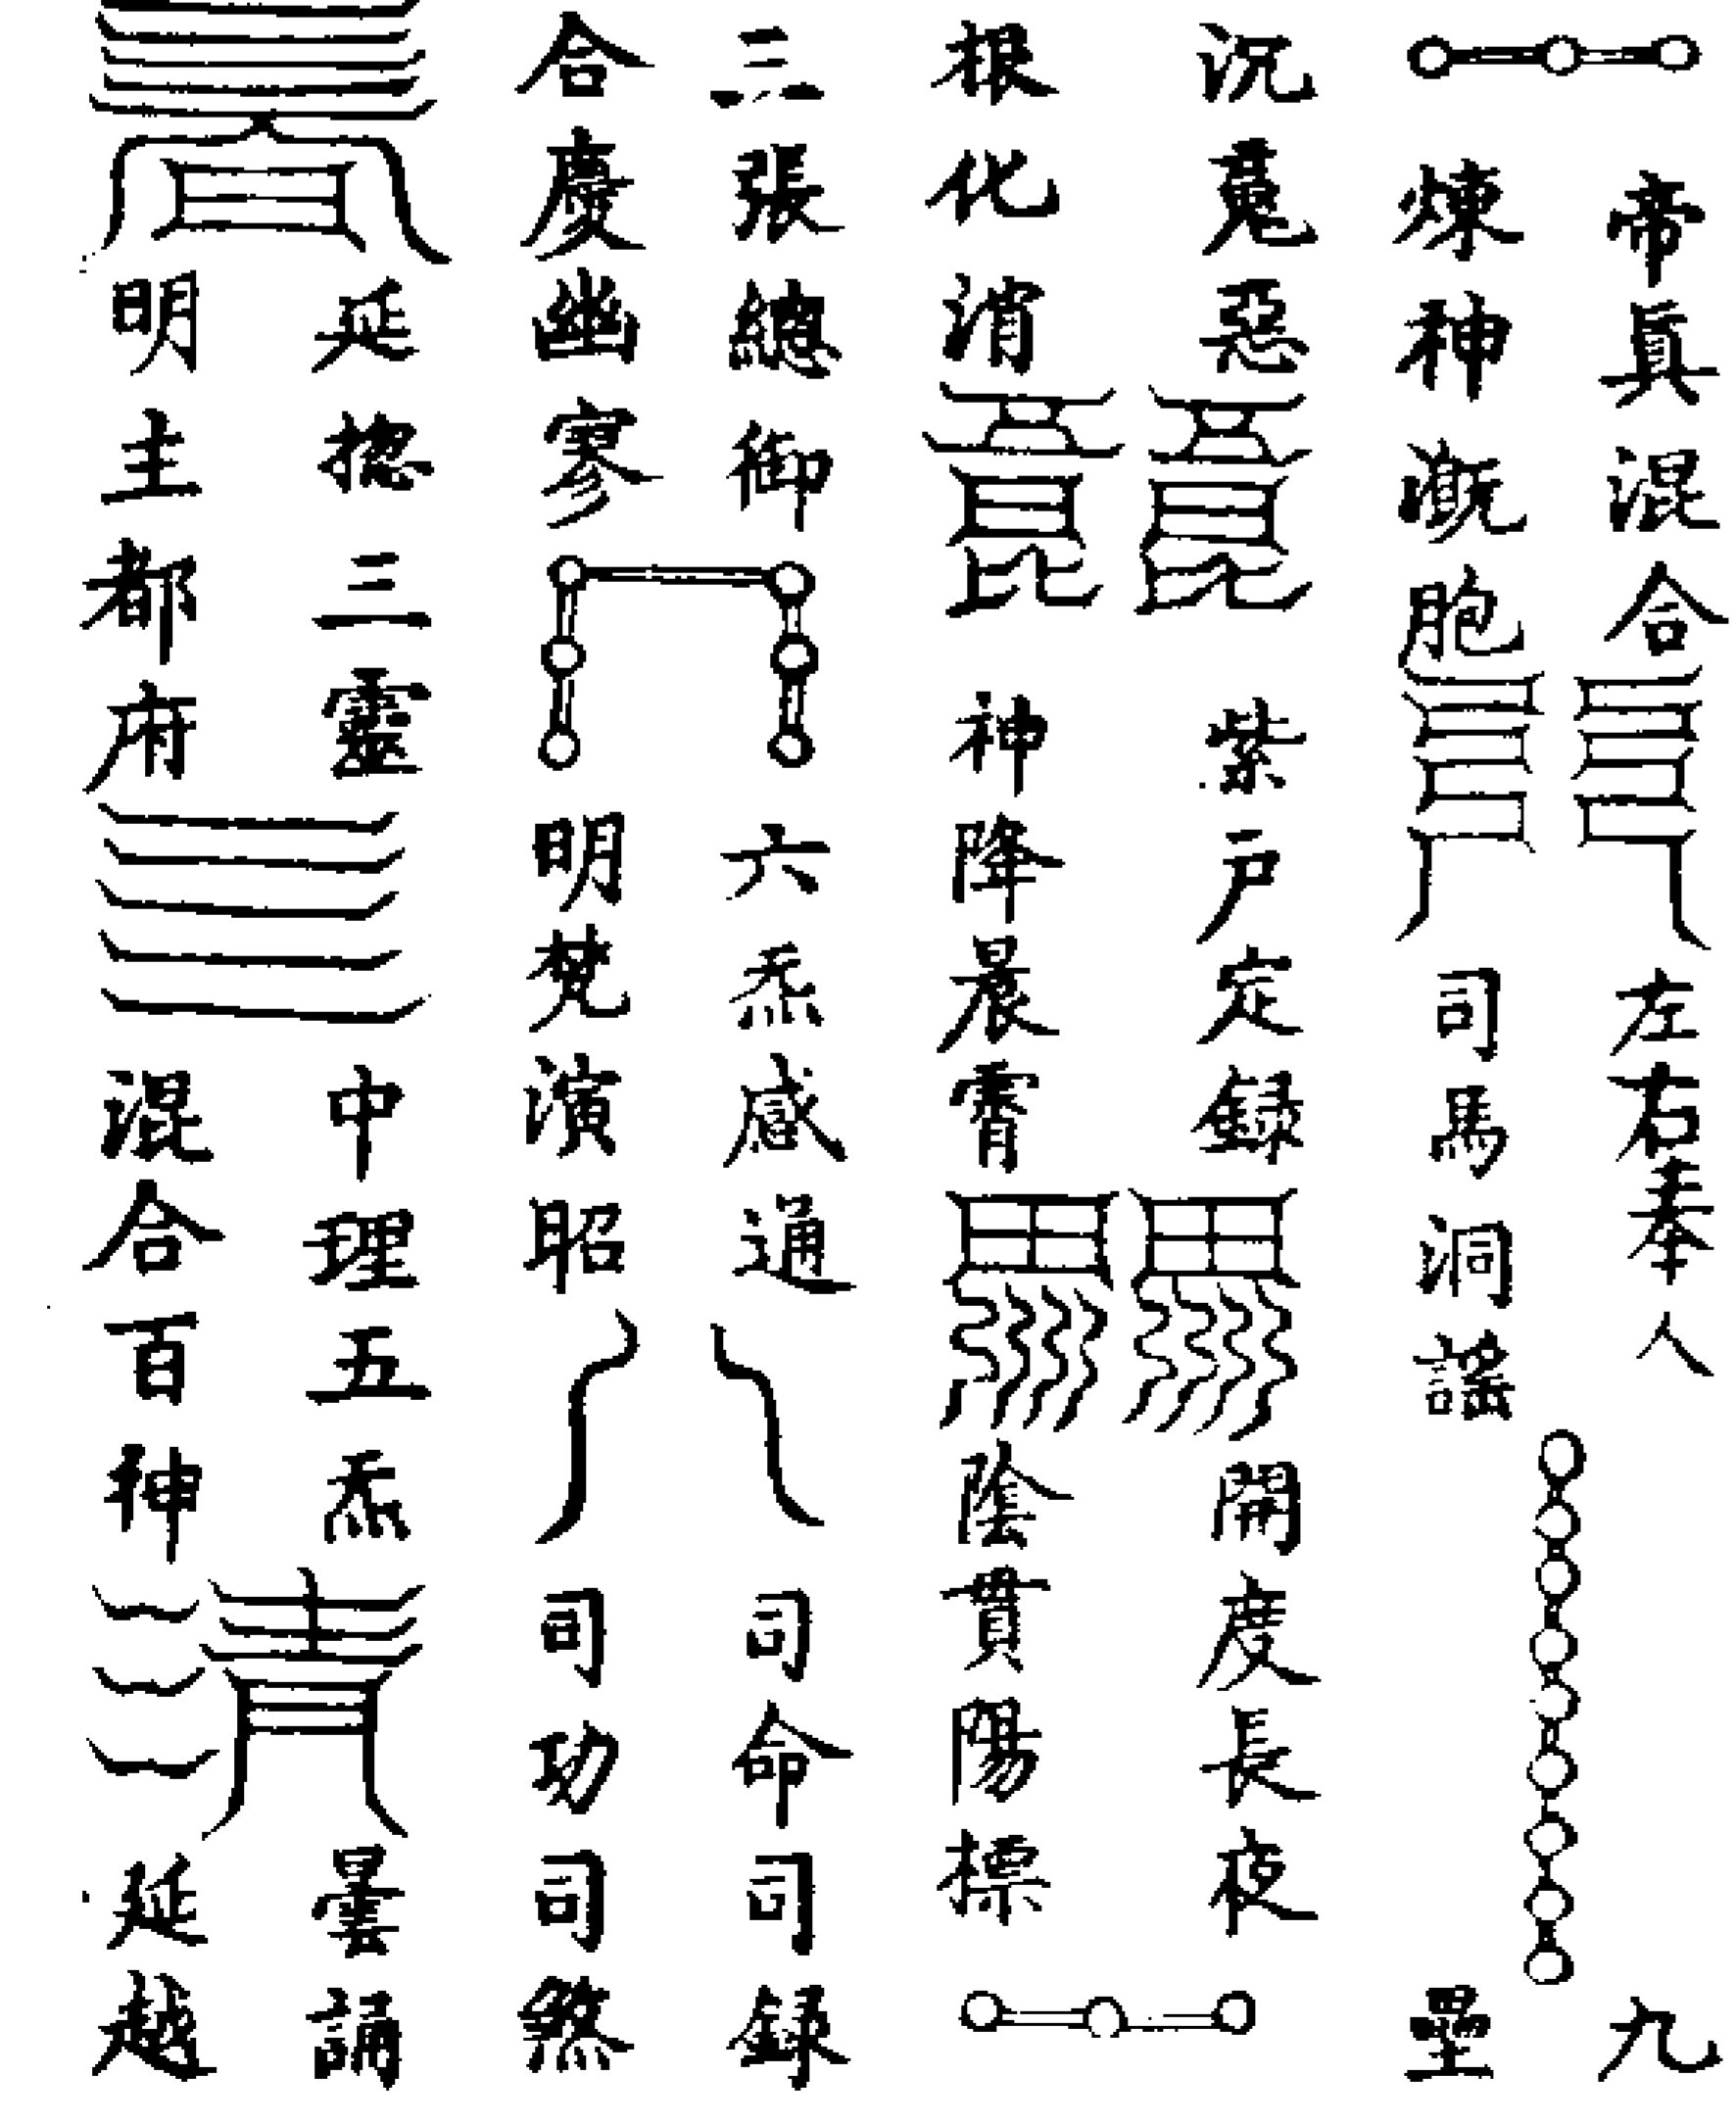 帝真混合左右奉人九
煉神㡭胞司馬洞謠壘
沉冤惡紫戶定録開度長夜
根化消神降晨霄陰貫陽標
三張總御六炁感通司命司録
合慶幽寥明梵演昭司功司煞
延捴三靈中理五炁曇誦
明主都府混合百神延越